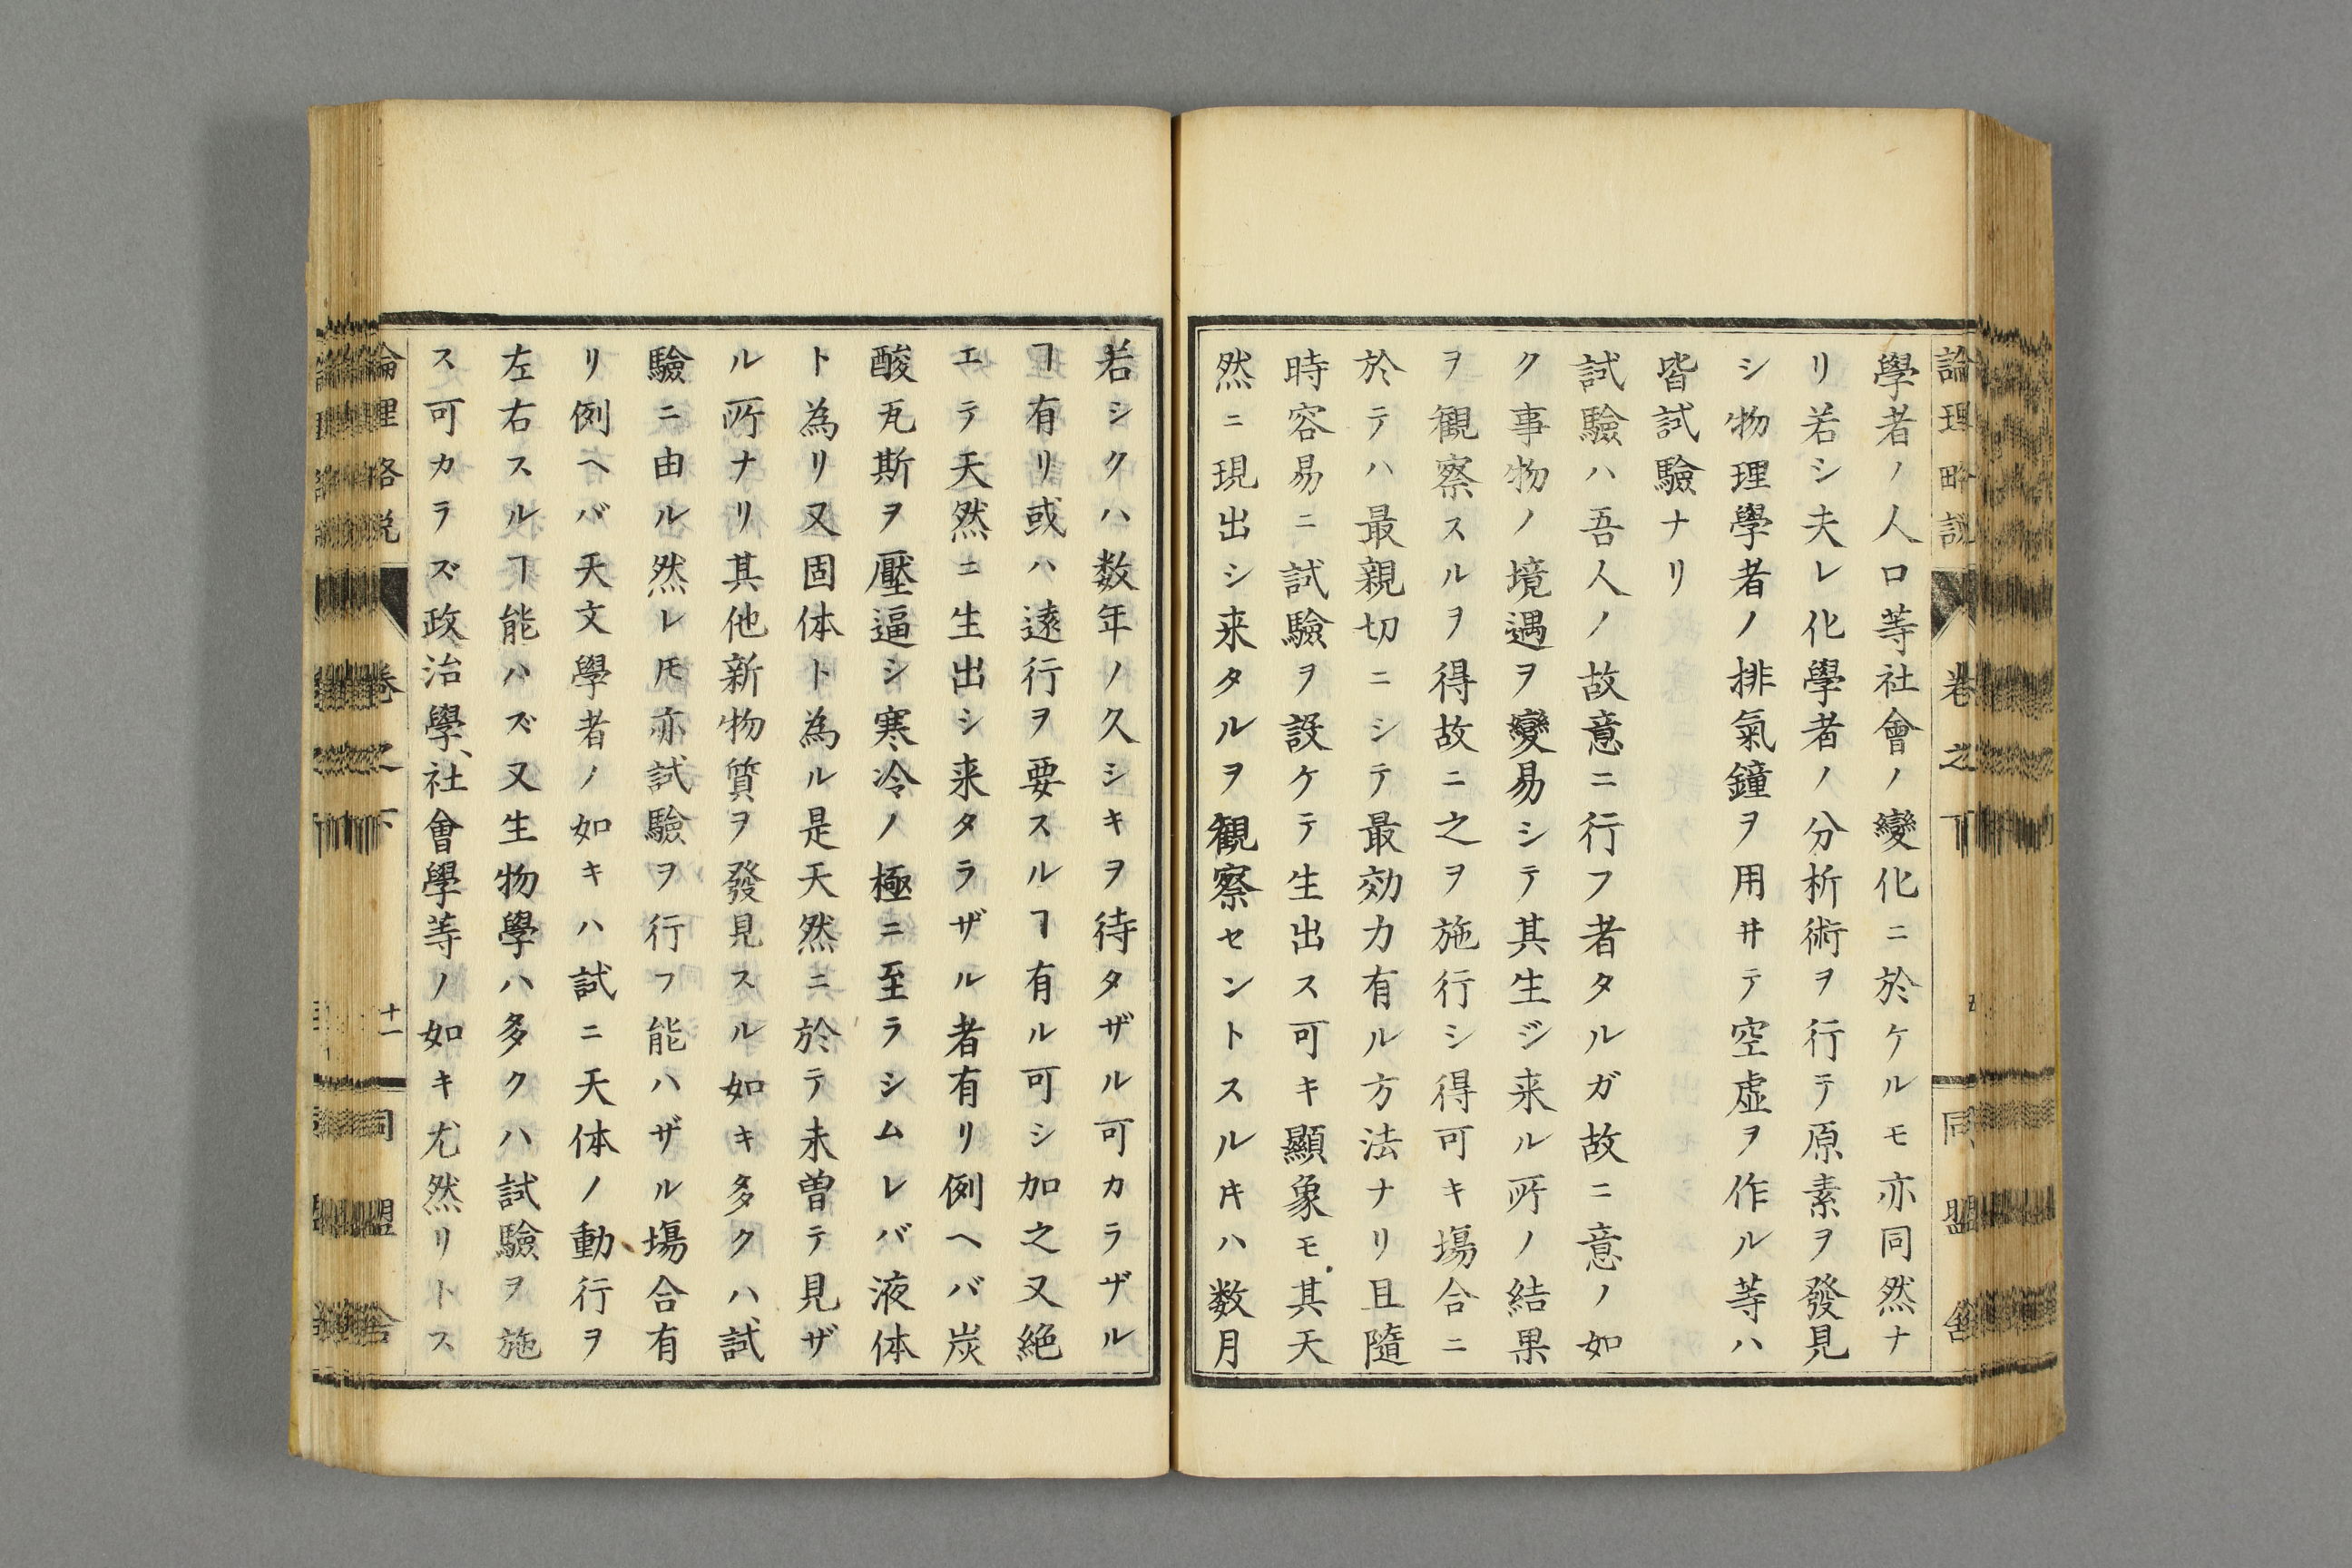 論理略説 卷之下 同盟舎
學者ノ人口等社會ノ變化ニ於ケルモ亦同然ナ
リ若シ夫レ化學者ノ分析術ヲ行テ原素ヲ發見
シ物理學者ノ排氣鐘ヲ用井テ空虚ヲ作ル等ハ
皆試驗ナリ
試驗ハ吾人ノ故意ニ行フ者タルガ故ニ意ノ如
ク事物ノ境遇ヲ變易シテ其生ジ来ル所ノ結果
ヲ観察スルヲ得故ニ之ヲ施行シ得可キ塲合ニ
於テハ最親切ニシテ最効力有ル方法ナリ且隨
時容易ニ試驗ヲ設ケテ生出ス可キ顯象モ其天
然ニ現出シ来タルヲ観察セントスルキハ数月
若シクハ数年ノ久シキヲ待タザル可カラザル
ヿ有リ或ハ遠行ヲ要スルヿ有ル可シ加之又絶
エテ天然ニ生出シ来タラザル者有リ例ヘバ炭
酸瓦斯ヲ壓逼シ寒冷ノ極ニ至ラシムレバ液体
ト為リ又固体ト為ル是天然ニ於テ未曽テ見ザ
ル所ナリ其他新物質ヲ發見スル如キ多クハ試
驗ニ由ル然レ𪜈亦試驗ヲ行フ能ハザル塲合有
リ例ヘバ天文學者ノ如キハ試ニ天体ノ動行ヲ
左右スルヿ能ハズ又生物學ハ多クハ試驗ヲ施
ス可カラズ政治學、社會學等ノ如キ尤然リトス
論理略説 卷之下 十一 同盟舎